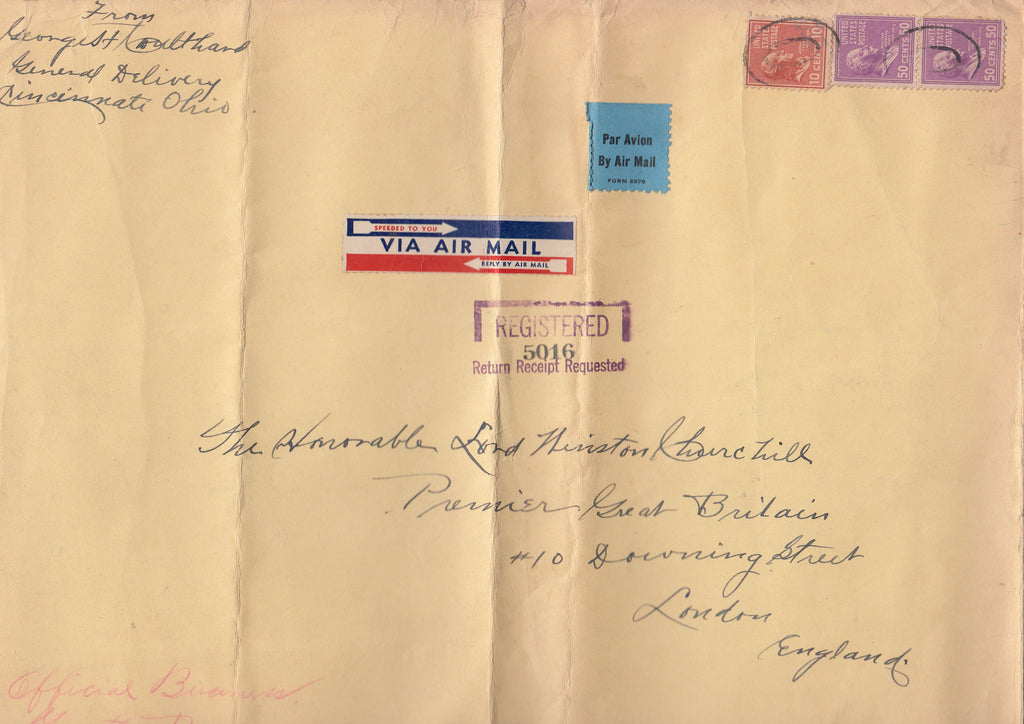 From
George H Coulthard
General Delivery
Cincinnate Ohio
UNITED STATES POSTAGE
10 CENTS 10
UNITED STATES POSTAGE
50 CENTS 50
50 CENTS 50
Par Avion
By Air Mail
FORM 2978
SPEEDED TO YOU
VIA AIR MAIL
REPLY BY AIR MAIL
REGISTERED
5016
Return Receipt Requested
The Honorable Lord Winston Churchill
Premier Great Britain
#10 Downing Street
London
England.
Official Business.